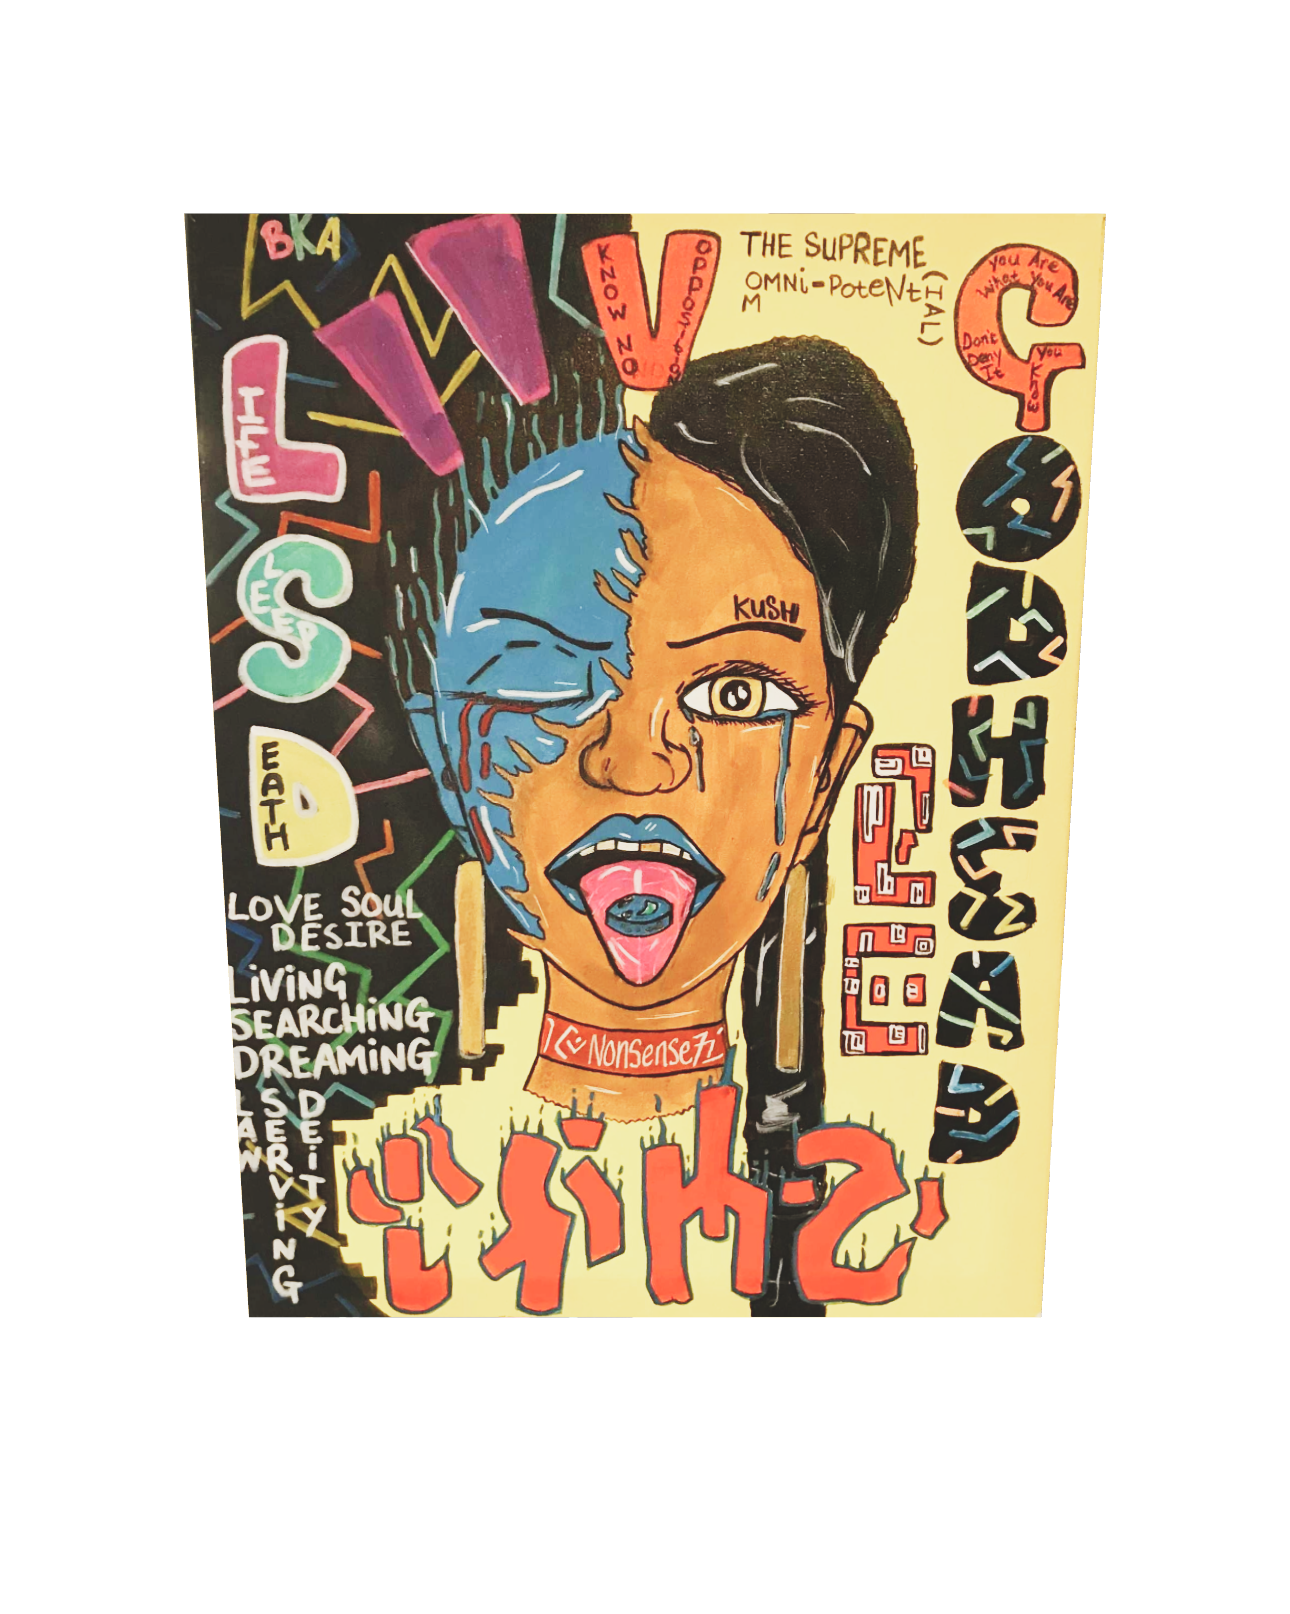 BKA
LIFE
SLEEP
DEATH
LOVE SOUL
DESIRE
LiViNG
SEARCHiNG
DREAMiNG
LAW
SERViNG
DEiTY
V
KNOW NO
OPPOSITION
THE SUPREME
OMNi-PoteNt
M
(IAL)
GODHEAD
You Are
What You Are
Don't
Deny
It
You
Know
KUSH
NonSense7i